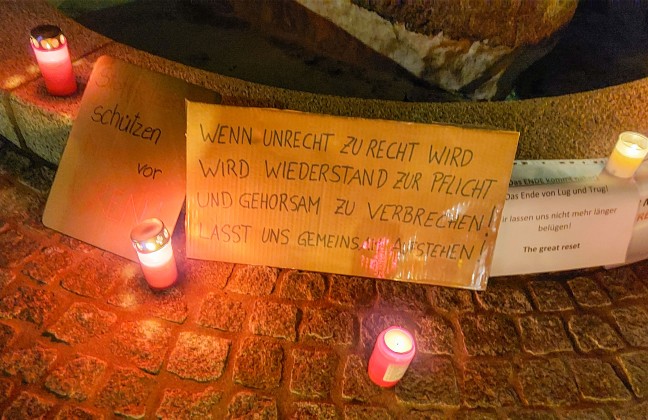 schützen
vor
WENN UNRECHT ZU RECHT WIRD
WIRD WIEDERSTAND ZUR PFLICHT
UND GEHORSAM ZU VERBRECHEN!
LASST UNS GEMEINSAM AUFSTEHEN!
Das ENDE kommt
(Das Ende von Lug und Trug)
r lassen uns nicht mehr länger
belügen!
The great reset